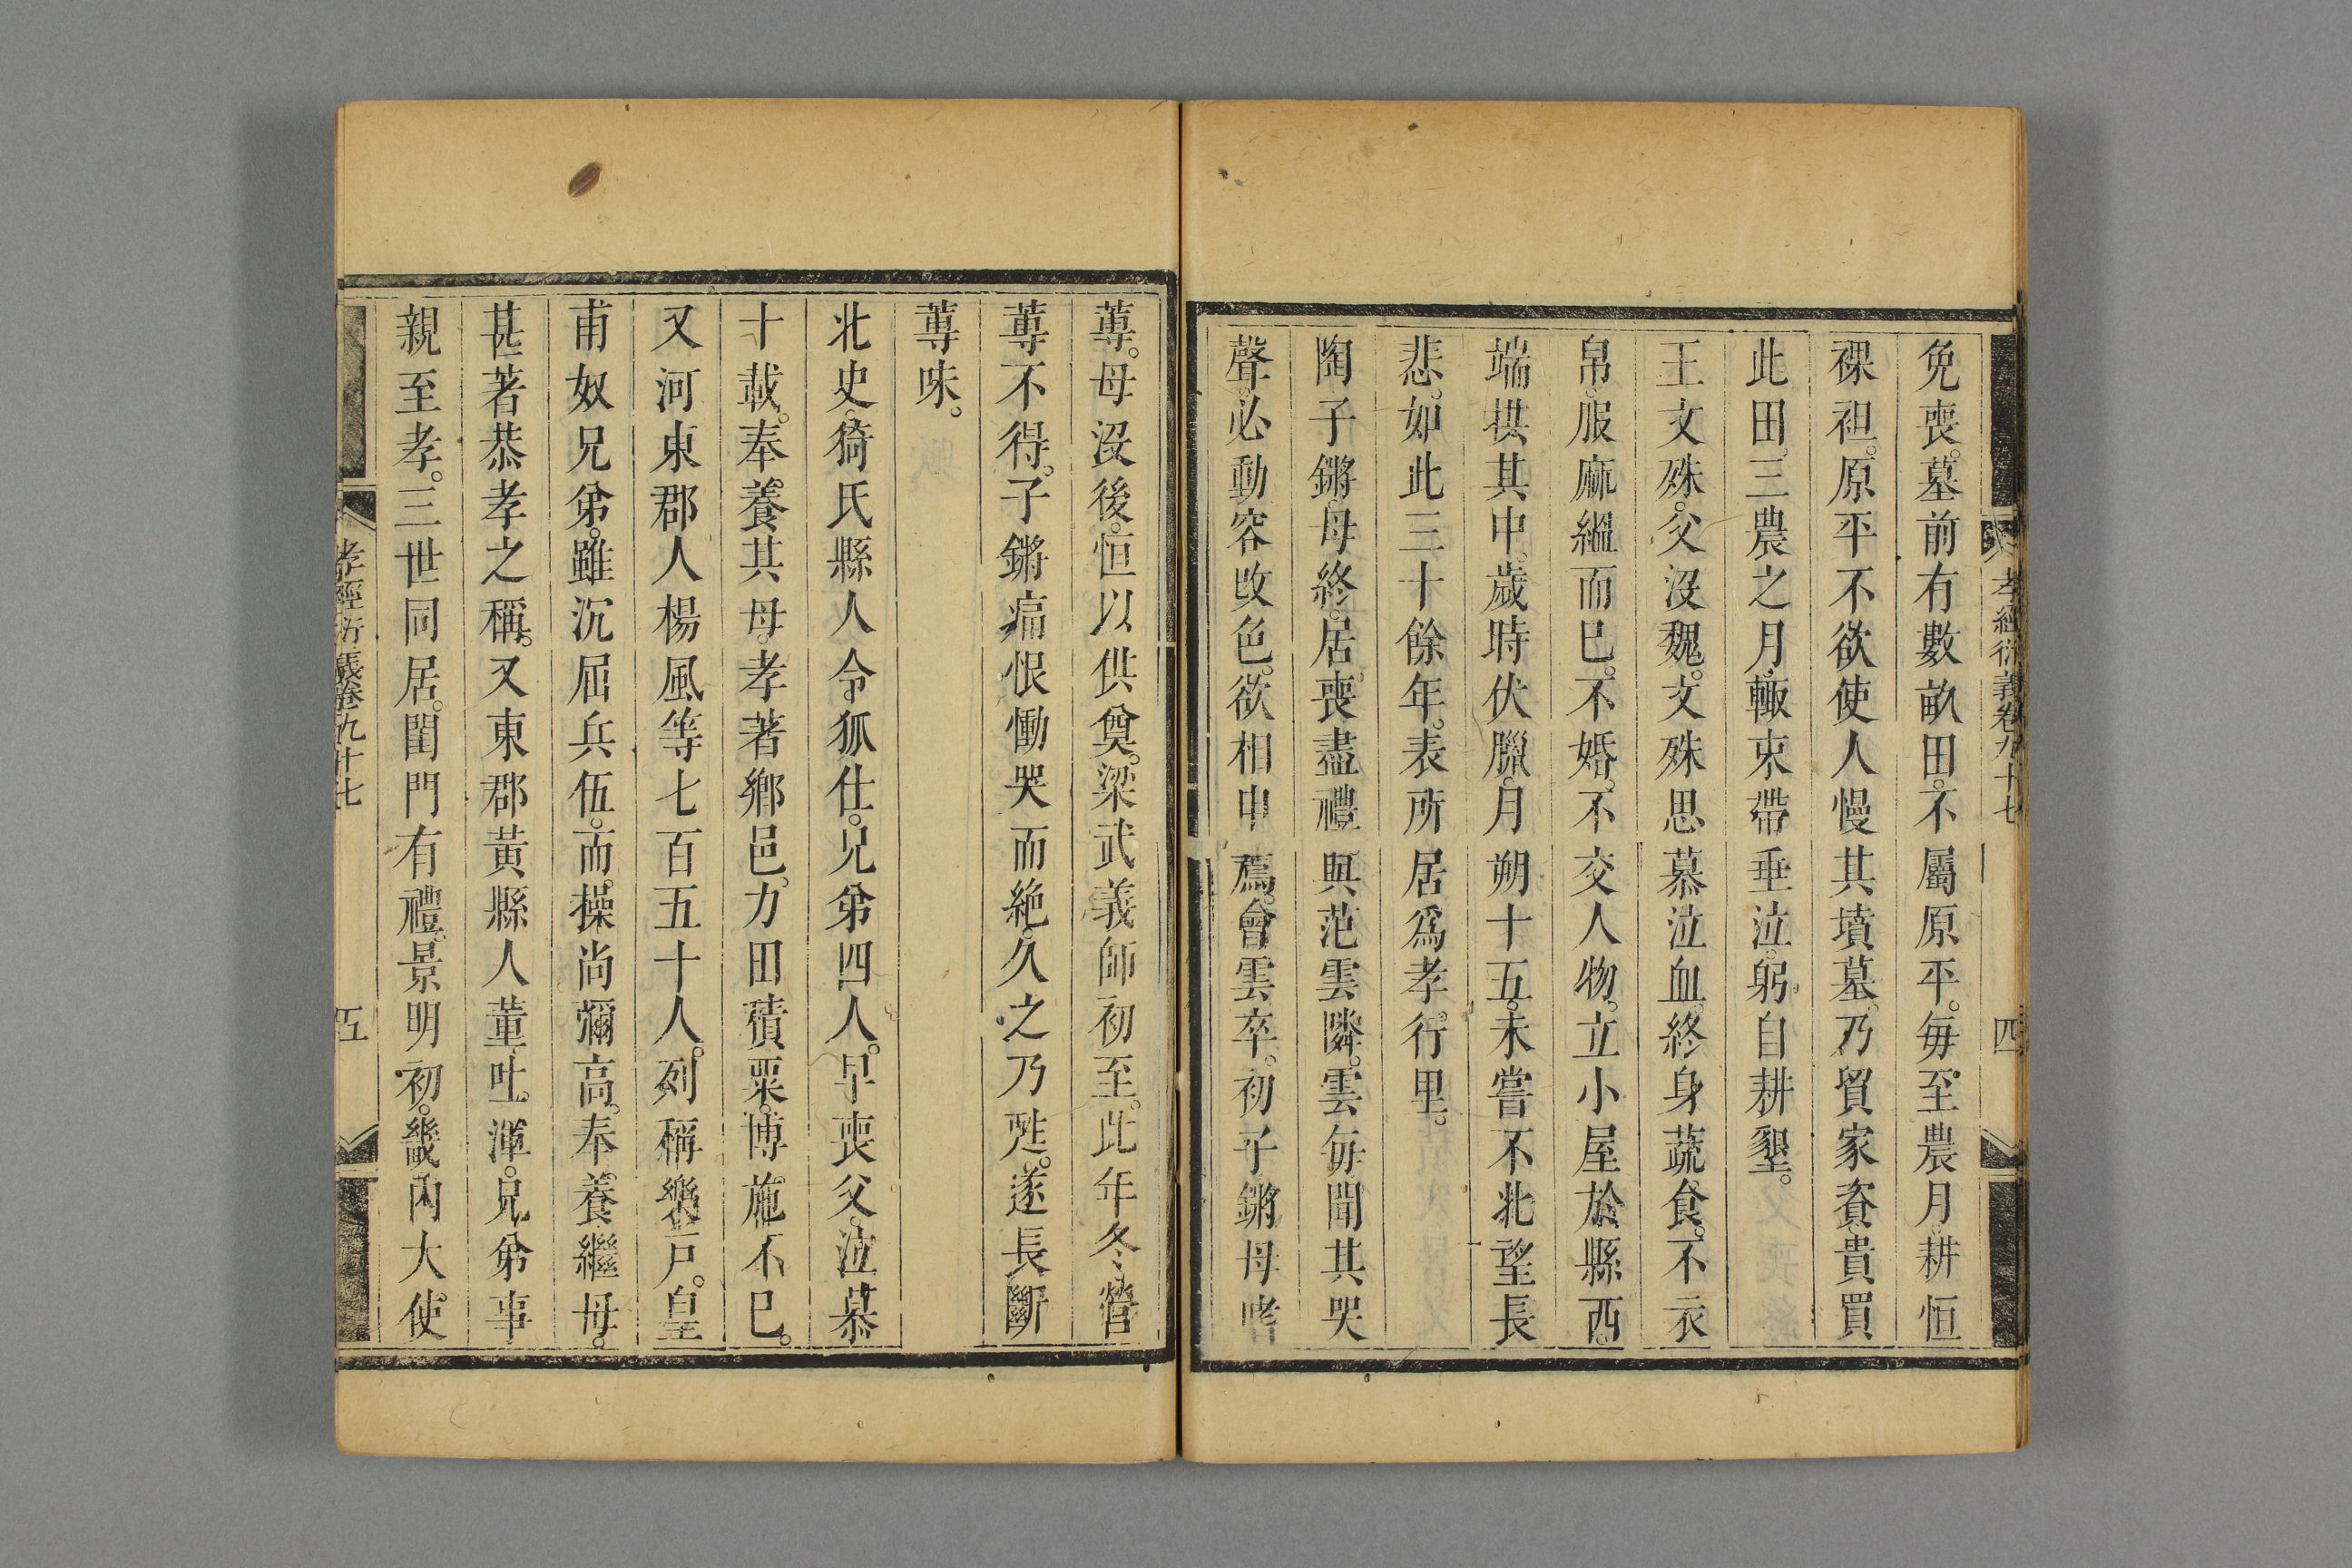 孝經衍義卷九十七 四
免喪。墓前有數畝田。不屬原平。每至農月。耕恒
裸袒。原平不欲使人慢其墳墓。乃貿家資。貴買
此田。三農之月。輙束帶垂泣。躬自耕墾。
王文殊。父沒魏。文殊思慕泣血。終身蔬食。不衣
帛。服麻縕而已。不婚。不交人物。立小屋於縣西。
端拱其中。歲時伏臘。月朔十五。未嘗不北望長
悲。如此三十餘年。表所居為孝行里。
陶子鏘。母終。居喪盡禮。與范雲隣。雲每聞其哭
聲。必動容改色。欲相申薦。會雲卒。初子鏘母嗜
蓴。母沒後。恒以供奠。梁武義師初至。此年冬營
蓴不得。子鏘痛恨慟哭而絶。久之乃甦。遂長斷
蓴味。
北史。猗氏縣人令狐仕。兄弟四人。早喪父。泣慕
十載。奉養其母。孝著鄉邑。力田積粟。博施不已。
又河東郡人楊風等七百五十人。列稱樂戸。皇
甫奴兄弟。雖沉屈兵伍。而操尚彌高。奉養繼母。
甚著恭孝之稱。又東郡黃縣人董吐渾。兄弟事
親至孝。三世同居。閨門有禮。景明初。畿內大使。
孝經衍義卷九十七 五